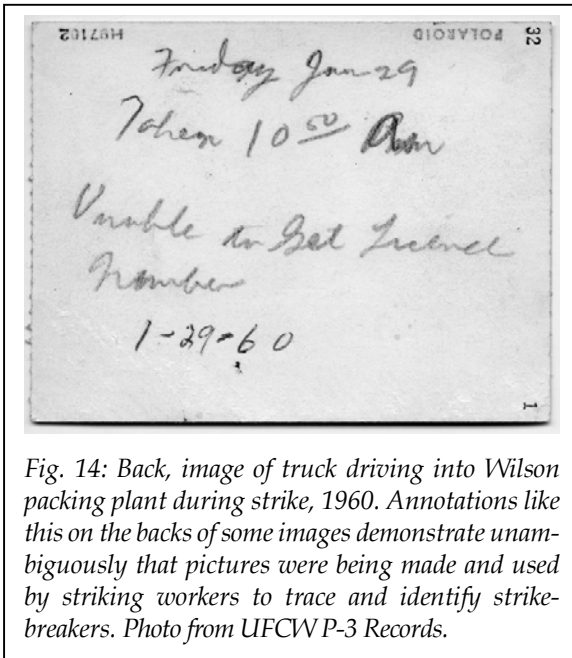 H97102 POLAROID 32
Friday Jan 29
Taken 10 50 Am
Unable to Get License
Number
1-29-60
1
Fig. 14: Back, image of truck driving into Wilson
packing plant during strike, 1960. Annotations like
this on the backs of some images demonstrate unam-
biguously that pictures were being made and used
by striking workers to trace and identify strike-
breakers. Photo from UFCW P-3 Records.